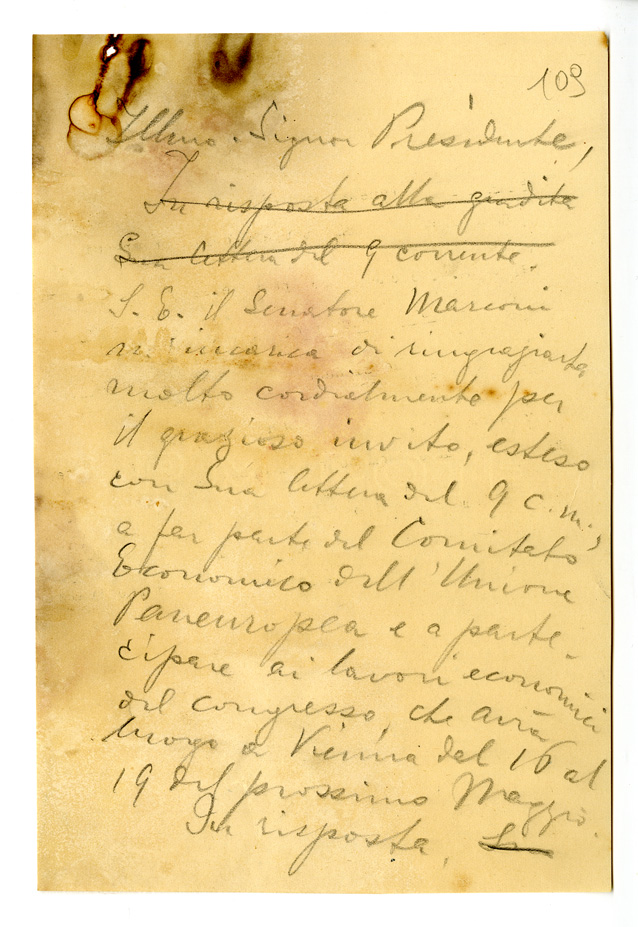 109
Illmo. Signor Presidente,
In risposta alla gradita
Sua lettera del 9 corrente.
S. E. il Senatore Marconi
m'incarica di ringraziarla
molto cordialmente per
il grazioso invito, esteso
con Sua lettera del 9 c.m.,
a far parte del Comitato
Economico dell'Unione
Paneuropea e a parte-
cipare ai lavori economici
del congresso, che avrà
luogo a Vienna dal 16 al
19 del prossimo Maggio.
In risposta, Le